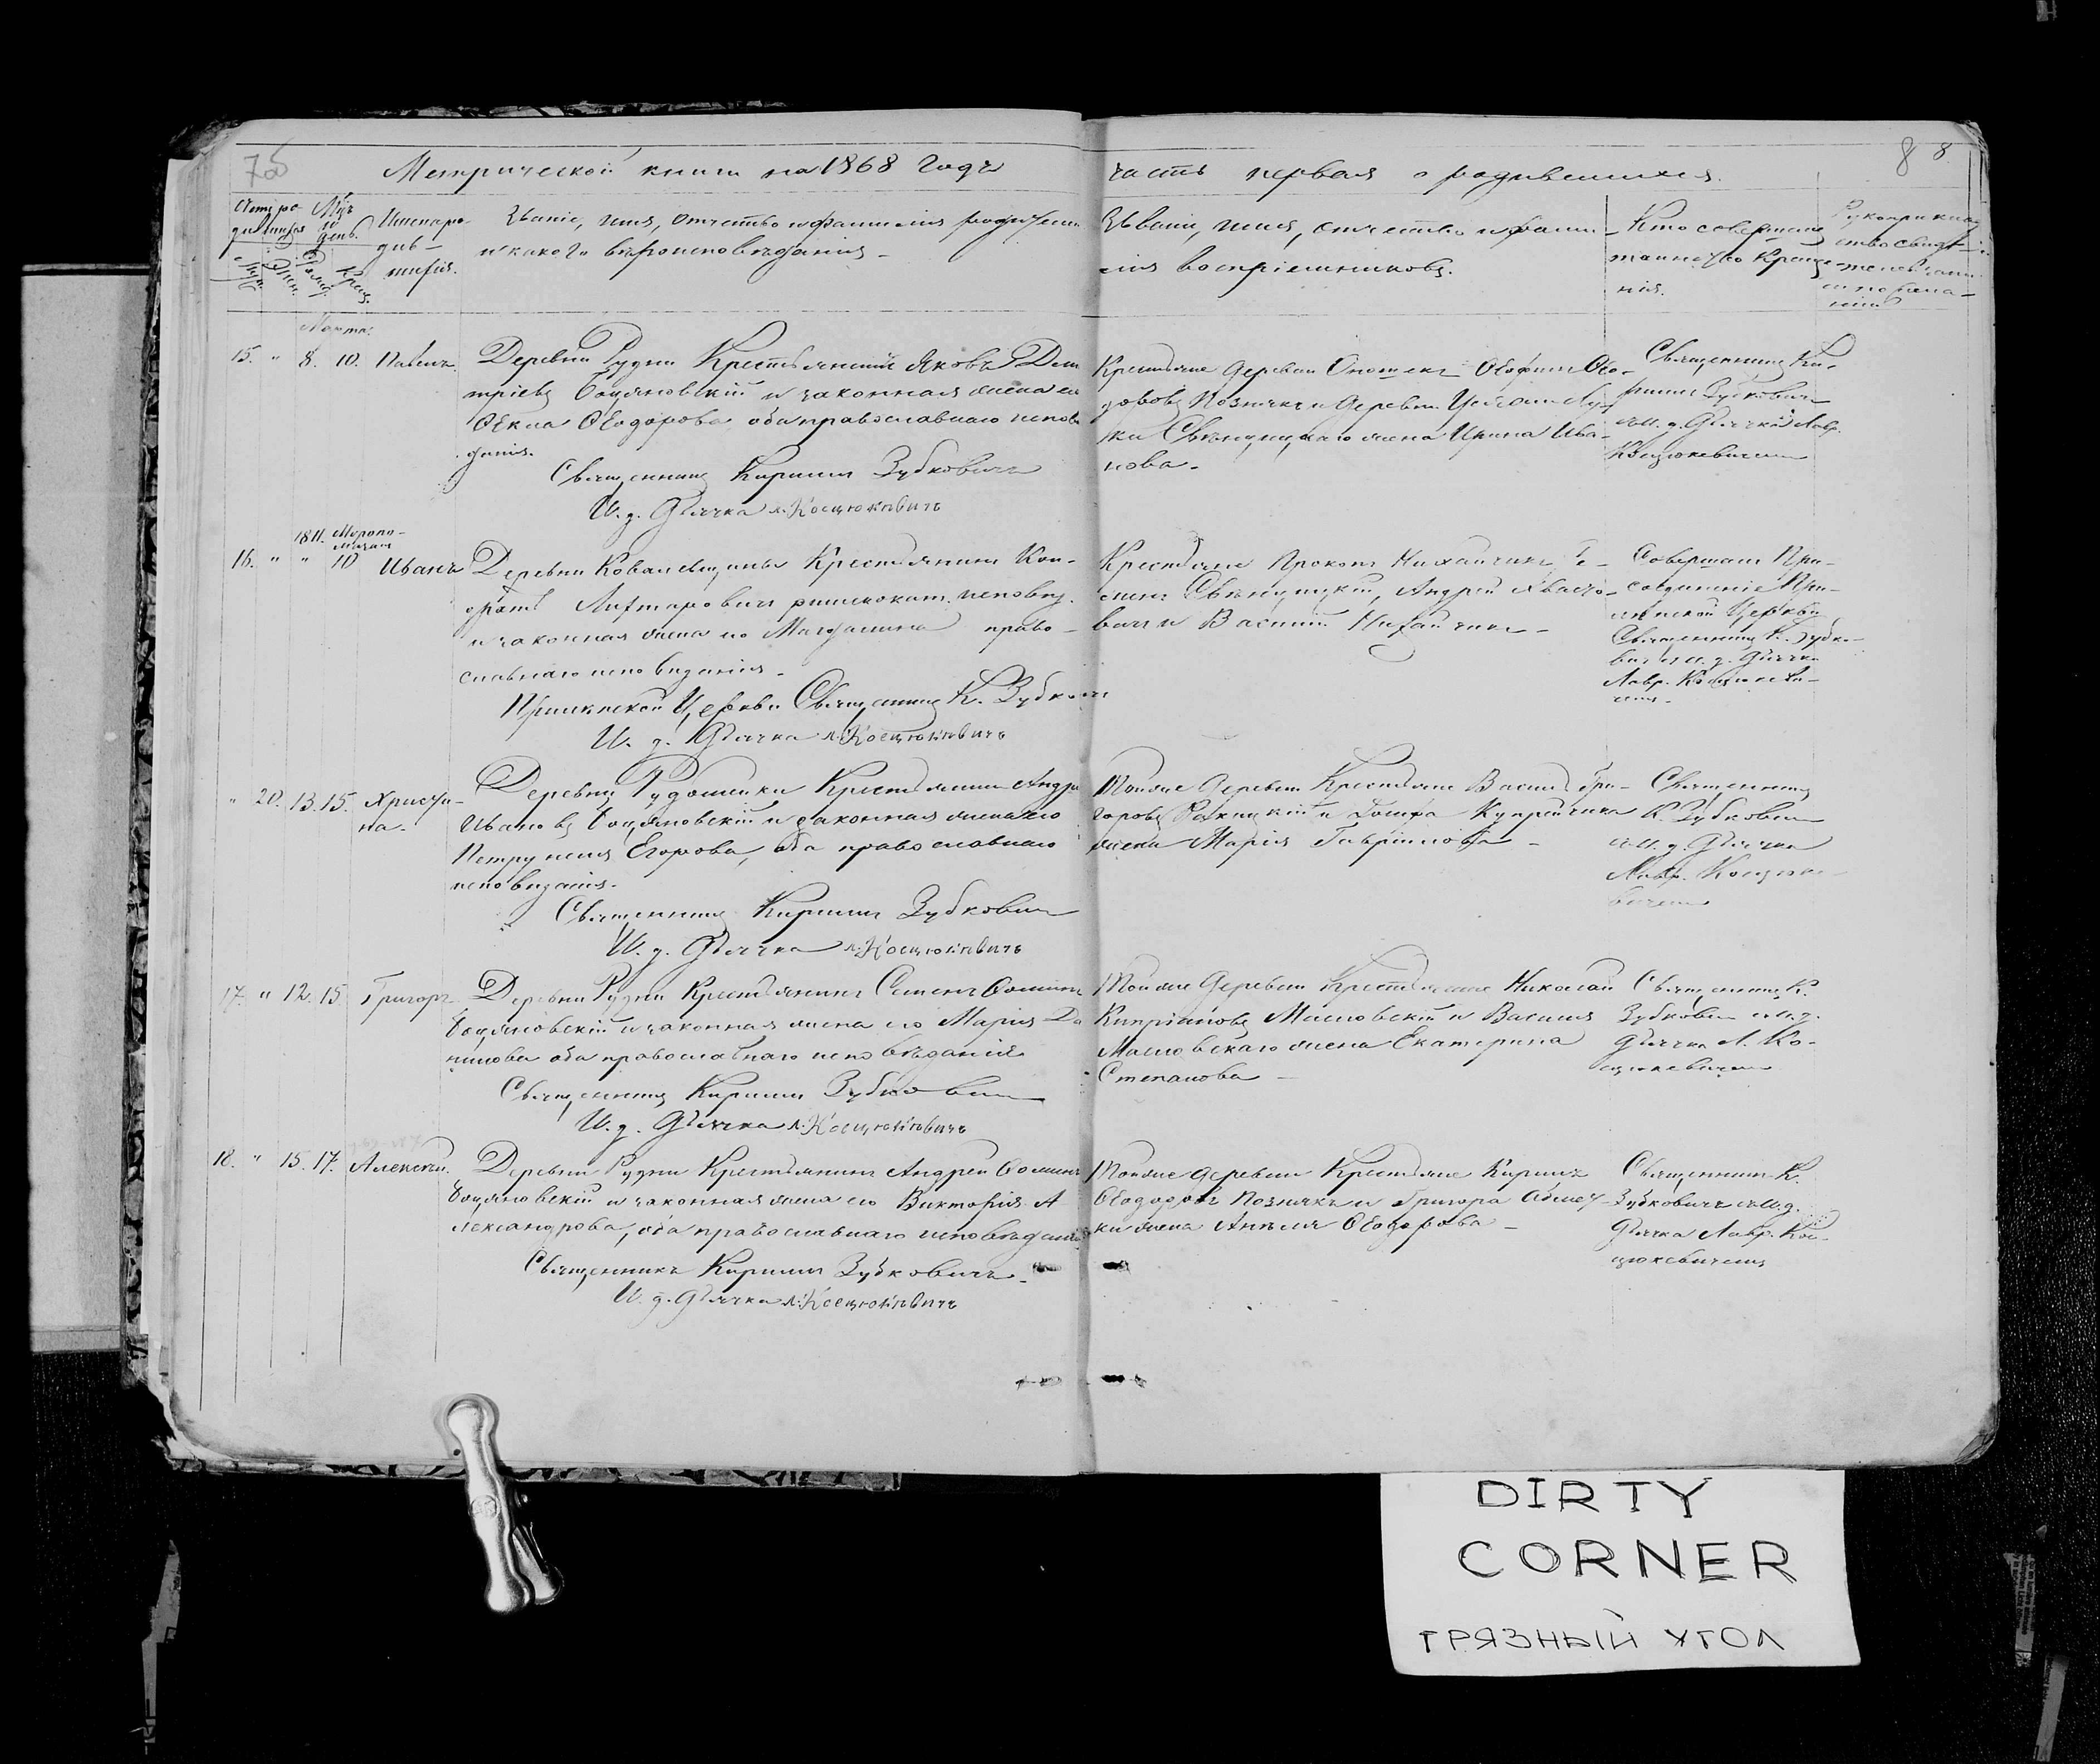 7об
Метрической книги на 1868 годъ
часть первая о родившихся.
8 8
Счетъ ро-
дившихся
Мѣс.
и день.
Имена ро-
див-
шихся.
Званіе, имя, отчество и фамилія родителей
и какого вѣроисповѣданія
Званіе, имя, отчество и фами-
лія воспріемниковъ.
Кто совершалъ
таинство Креще-
нія.
Рукоприклад-
ство свидѣ-
телей
Марта.
15. " 8. 10. Павелъ.
Деревни Рудни Крестьянинъ Яковъ Дми
тріевъ Боцяновскій и законная жена его
Ѳекла Ѳеодорова оба православнаго исповѣ
данія.
Священникъ Кириллъ Зубковичъ
И. д. Дьячка Л. Косцюкевичъ
Крестьяне деревни
дорова Познякъ и деревни
жена Ирина Ива-
нова.
Священникъ Ки-
риллъ Зубковичъ
съ и. д. Дьячка Лавр.
Косцюкевичемъ
1811. Мѵропо-
мазан
16. " " 10 Иванъ
Деревни Ковалевщины Крестьянинъ Кон-
дратъ римскокат. исповѣд.
и законная жена его Магдалина право-
славнаго исповѣданія.
Церкви Священникъ К. Зубковичъ
И. д. Дьячка Л. Косцюкевичъ
Крестьяне Прокопъ Михальчикъ, Се-
менъ Андрей
вичъ и Василій
Совершалъ При-
соединеніе
Церкви
Священникъ К. Зубко-
вичъ съ и. д. Дьячка
Лавр. Косцюкеви-
чемъ.
" 20. 13. 15. Христи-
на.
Деревни Рудошейки Крестьянинъ Андрей
Ивановъ Боцяновскій и законная жена его
Петрунеля Егорова, оба православнаго
исповѣданія.
Священникъ Кириллъ Зубковичъ
И. д. Дьячка Л. Косцюкевичъ
Той же деревни Крестьяне Василій Гри-
горовъ и Іосифа Купрейчика
жена Марія Гавріилова
Священникъ
К. Зубковичъ
съ и. д. Дьячка
Лавр. Косцюке-
вичемъ
17. " 12. 15. Григорій
Деревни Рудни Крестьянинъ Семенъ Ѳоминъ
Боцяновскій и законная жена его Марія Да
нилова оба православнаго исповѣданія
Священникъ Кириллъ Зубковичъ
И. д. Дьячка Л. Косцюкевичъ
Той же деревни Крестьяне Николай
Кипріановъ Масловскій и Василія
Масловскаго жена Екатерина
Степанова
Священникъ К.
Зубковичъ съ и. д.
Дьячка Л. Ко-
сцюкевичемъ
18. " 15. 17. Алексѣй.
Деревни Рудни Крестьянинъ Андрей Ѳоминъ
Боцяновскій и законная жена его Викторія А-
лександрова, оба православнаго исповѣданія
Священникъ Кириллъ Зубковичъ
И. д. Дьячка Л. Косцюкевичъ
Той же деревни Крестьяне Кириллъ
Ѳеодоровъ Познякъ и Григора
ки жена Анѣля Ѳеодорова
Священникъ К.
Зубковичъ съ и. д.
Дьячка Лавр. Кос-
цюкевичемъ
DIRTY
CORNER
ГРЯЗНЫЙ УГОЛ